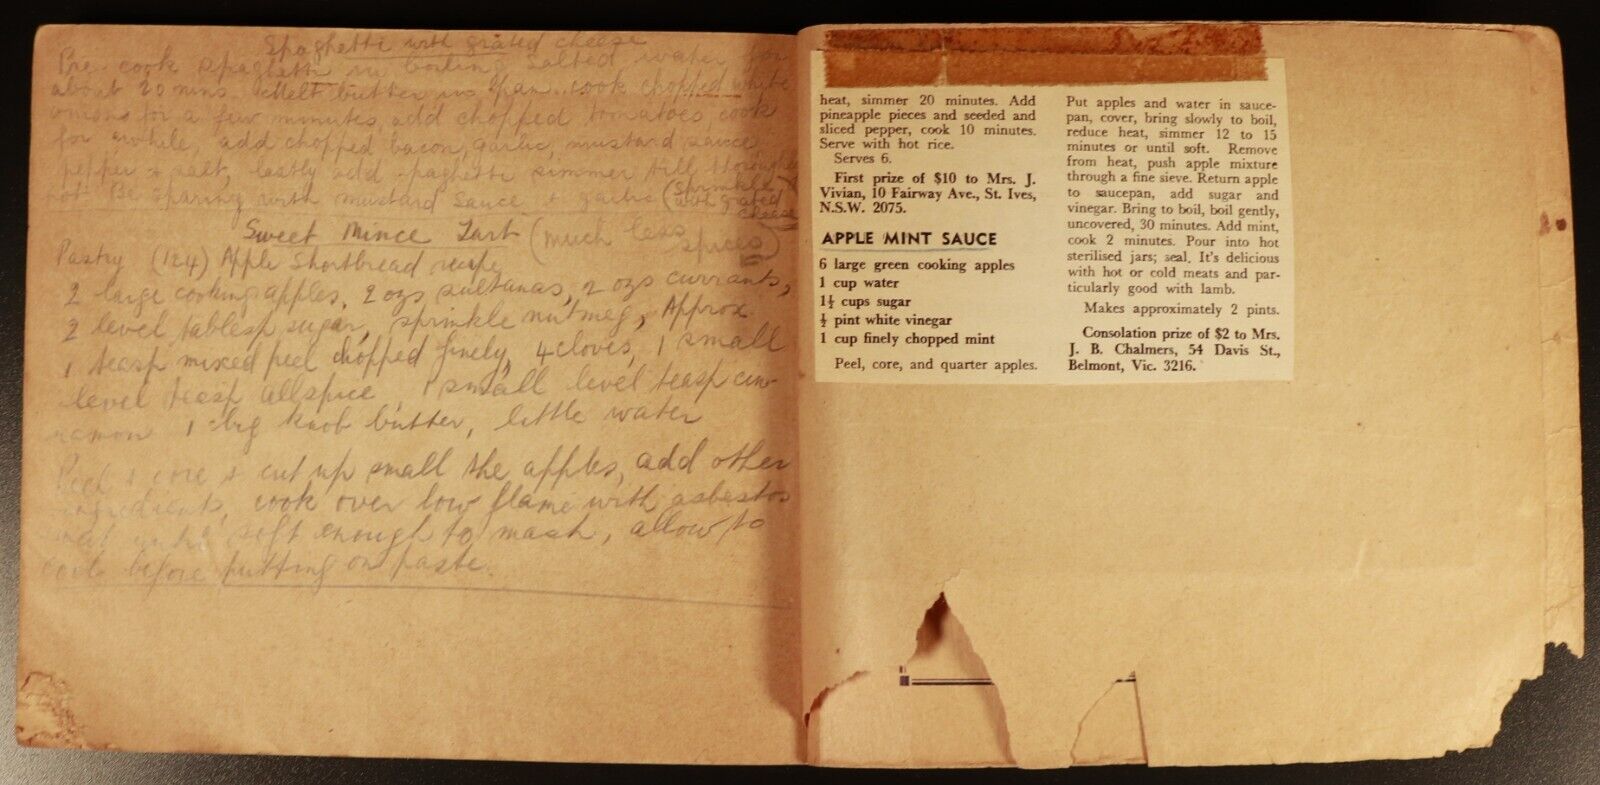 Spaghetti with grated cheese
Pre cook spaghetti in boiling salted water for
about 20 mins. Melt butter in pan cook chopped white
onions for a few minutes, add chopped tomatoes cook
for awhile, add chopped bacon, garlic, mustard sauce
pepper + salt, lastly add spaghetti simmer till
hot Be sparing with mustard sauce + garlic (Sprinkle
with grated
cheese
Sweet Mince Tart (much less
spices)
Pastry (124) Apple Shortbread recipe
2 large cooking apples, 2 ozs sultanas, 2 ozs currants,
2 level tablesp sugar, sprinkle nutmeg, Approx
1 teasp mixed peel chopped finely, 4 cloves, 1 small
level teasp allspice, 1 small level teasp cin-
namon 1 big knob butter, little water
Peel + core + cut up small the apples, add other
ingredients, cook over low flame with asbestos
mat until soft enough to mash, allow to
cool before putting on paste.
heat, simmer 20 minutes. Add
pineapple pieces and seeded and
sliced pepper, cook 10 minutes.
Serve with hot rice.
Serves 6.
First prize of $10 to Mrs. J.
Vivian, 10 Fairway Ave., St. Ives,
N.S.W. 2075.
APPLE MINT SAUCE
6 large green cooking apples
1 cup water
1½ cups sugar
½ pint white vinegar
1 cup finely chopped mint
Peel, core, and quarter apples.
Put apples and water in sauce-
pan, cover, bring slowly to boil,
reduce heat, simmer 12 to 15
minutes or until soft. Remove
from heat, push apple mixture
through a fine sieve. Return apple
to saucepan, add sugar and
vinegar. Bring to boil, boil gently,
uncovered, 30 minutes. Add mint,
cook 2 minutes. Pour into hot
sterilised jars; seal. It's delicious
with hot or cold meats and par-
ticularly good with lamb.
Makes approximately 2 pints.
Consolation prize of $2 to Mrs.
J. B. Chalmers, 54 Davis St.,
Belmont, Vic. 3216.